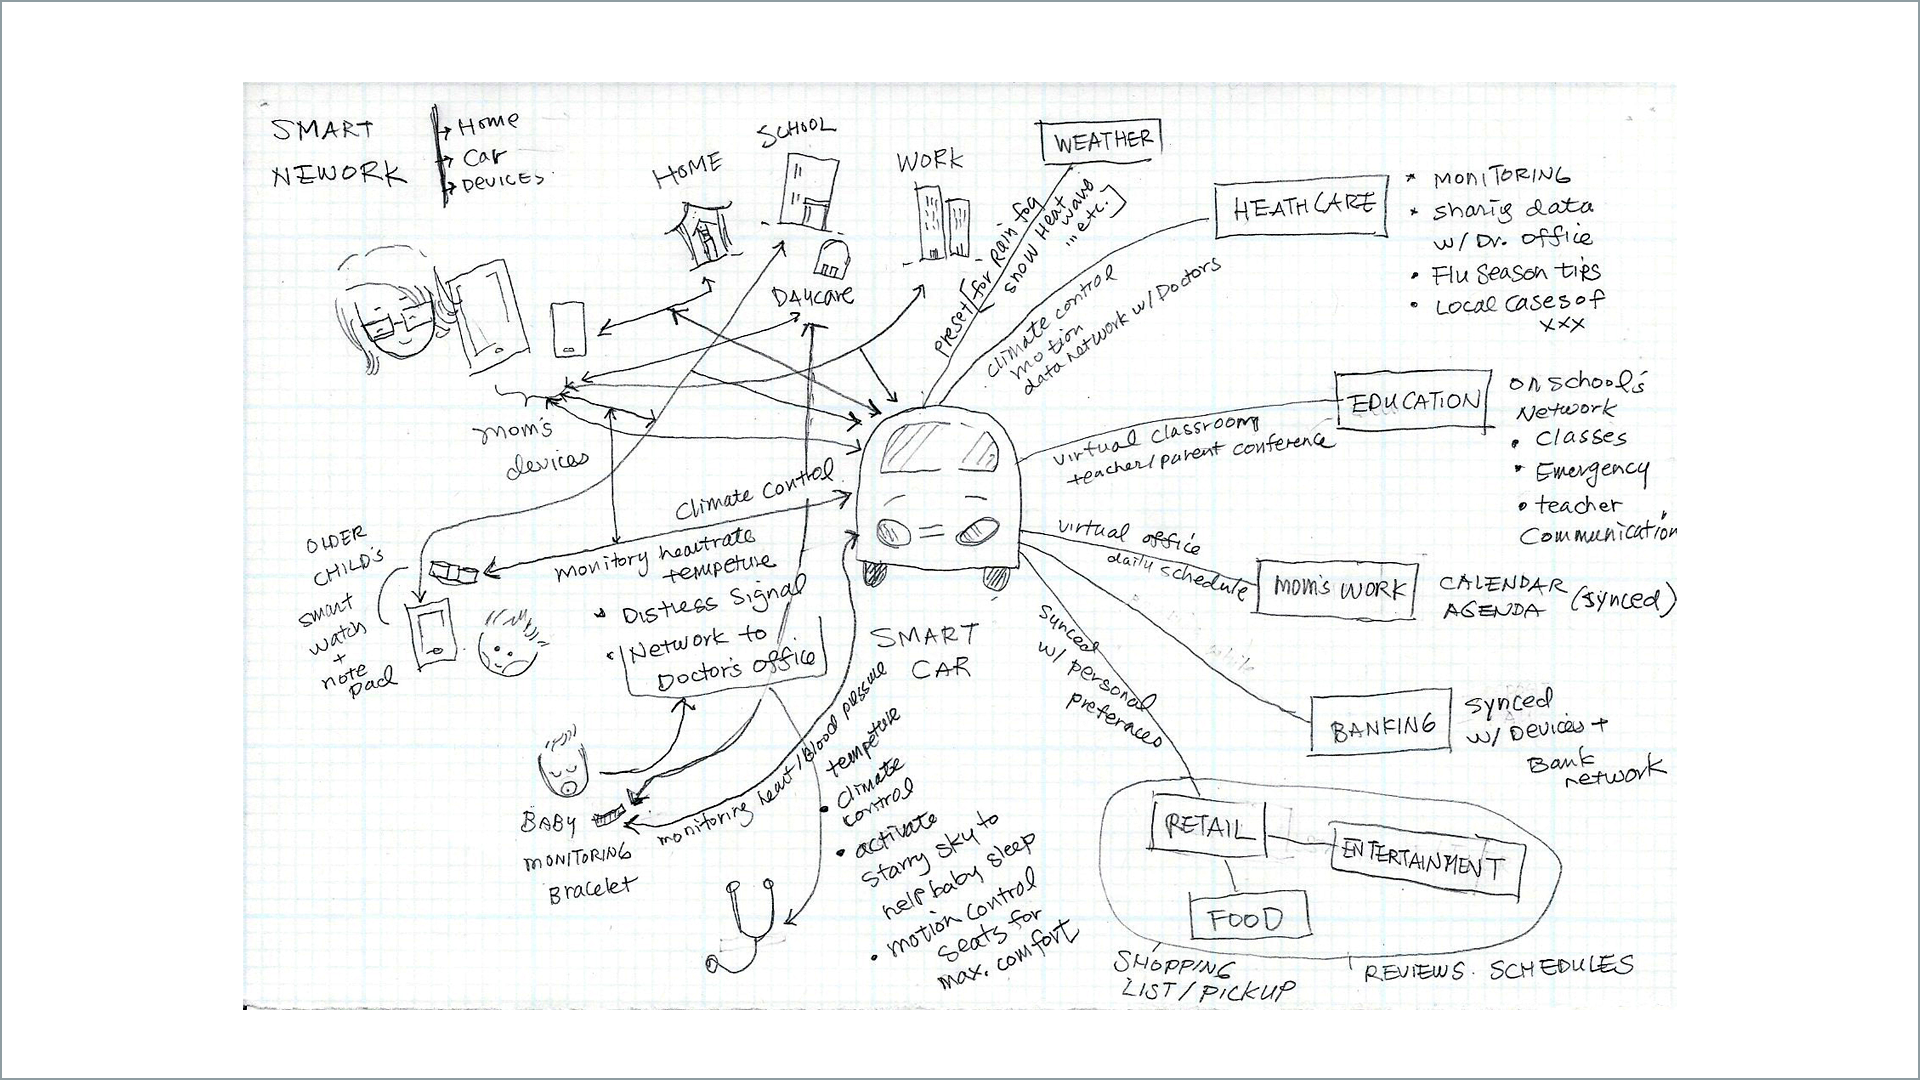 SMART
NEWORK
Home
Car
DEVICES
HOME
SCHOOL
DAYCARE
WORK
WEATHER
preset [for Rain fog
snow Heat
wave
...etc.]
HEATHCARE
* MONITORING
* sharig data
w/ Dr. office
• Flu season tips
• Local cases of
xxx
climate control
motion
data network w/ Doctors
EDUCATION
on school's
Network
• classes
• Emergency
• teacher
Communication
virtual classroom
teacher/parent conference
mom's
devices
Climate Control
monitory heartrate
tempeture
• Distress Signal
• Network to
Doctor's office
OLDER
CHILD'S
smart
watch
+
note
pad
virtual office
daily schedule
MOM'S WORK
CALENDAR
AGENDA (synced)
SMART
CAR
synced
w/ personal
preferaces
BANKING
synced
w/ Devices +
Bank
network
BABY
MONITORING
Bracelet
monitoring heart/Blood pressure
tempeture
• climate
control
• activate
starry sky to
help baby sleep
• motion control
seats for
max. comfort
RETAIL
ENTERTAINMENT
FOOD
SHOPPING
LIST/PICKUP
REVIEWS. SCHEDULES